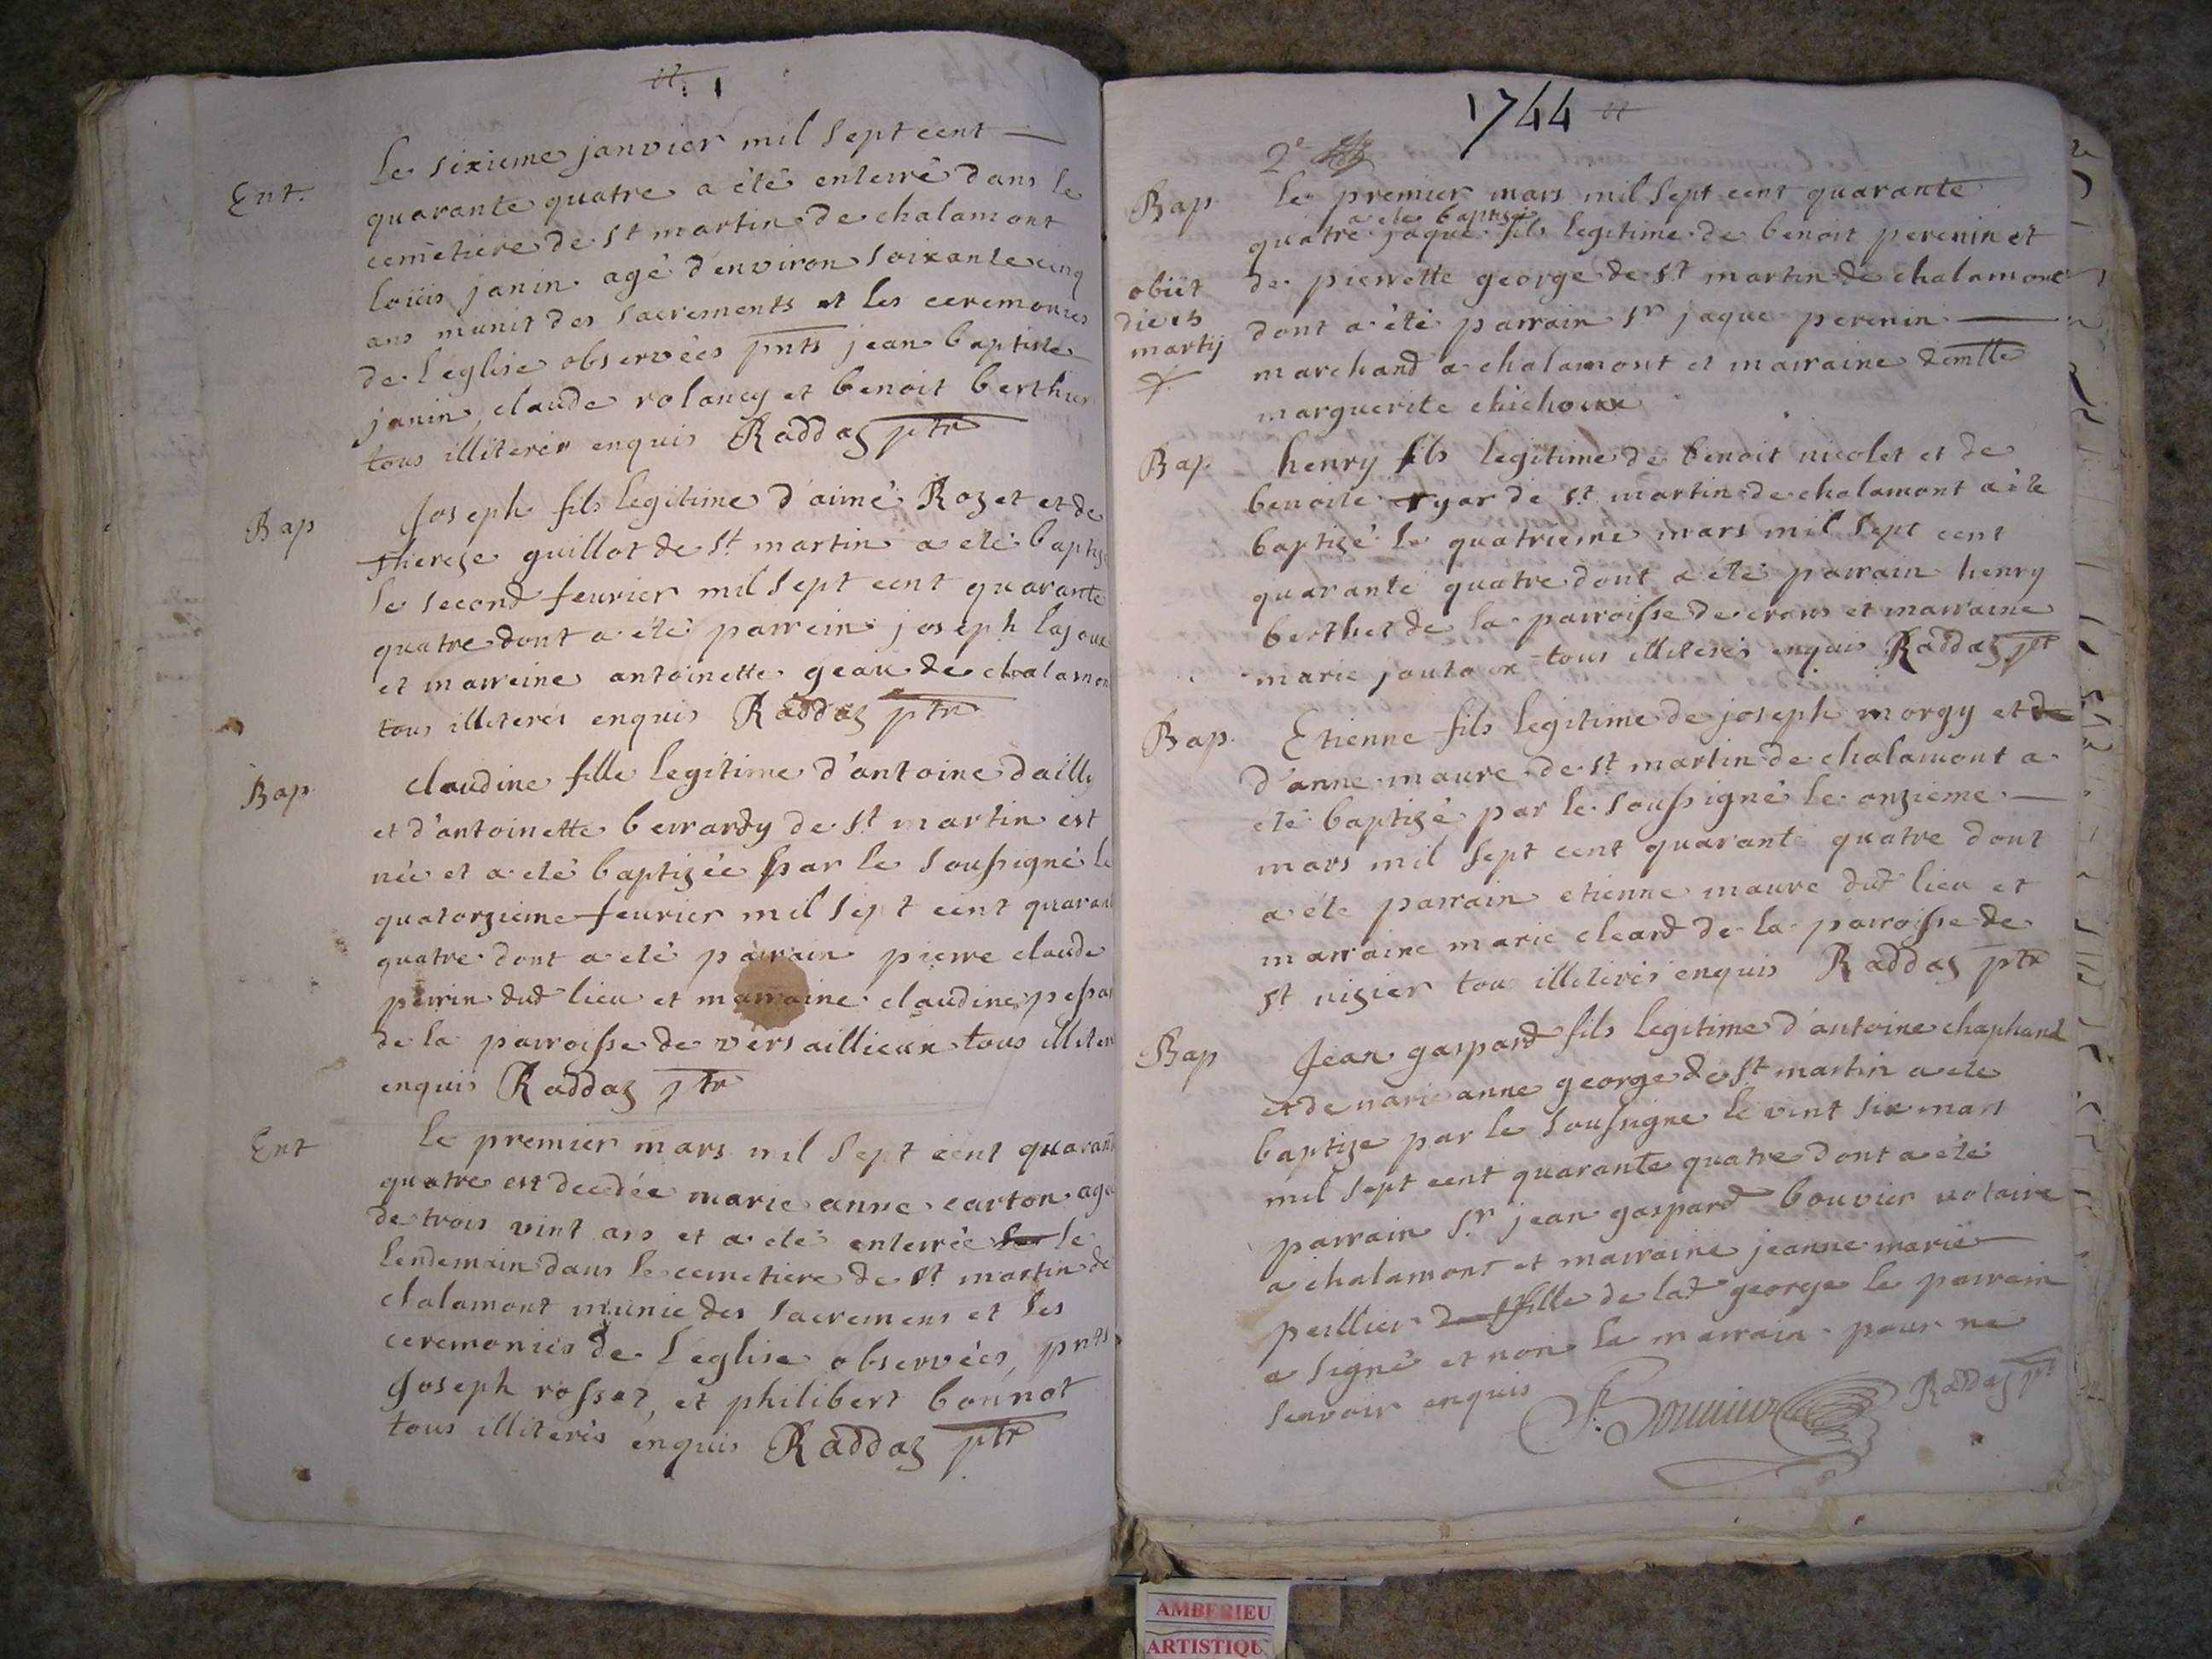 Ent.
Le sixieme janvier mil sept cent
quarante quatre a été enterré dans le
cemetiere de st martin de chalamont
loüis janin agé d'environ soixante cinq
ans munit des sacrements et les ceremonies
de l'eglise observées pnts jean baptiste
janin, claude rolancy et benoit berthier
tous illiterés enquis Raddaz ptr
Bap
Joseph fils legitime d'aimé Rozet et de
therese guillot de st martin a eté baptizé
le second feurier mil sept cent quarante
quatre dont a été parrein joseph lajoux
et marreine antoinette geau de chalamon
tous illiterés enquis Raddaz ptr
Bap
claudine fille legitime d'antoine dailly
et d'antoinette berrardy de st martin est
née et a eté baptizée par le soussigné le
quatorzieme feurier mil sept cent quarant
quatre dont a eté parrain pierre claude
perrin dud lieu et marraine claudine
de la parroisse de versaillieux tous illiter
enquis Raddaz ptr
Ent
Le premier mars mil sept cent quarant
quatre est decedée marie anne carton agé
de trois vint ans et a eté enterrée le
lendemain dans le cemetiere de st martin de
chalamont munie des sacremens et les
ceremonies de l'eglise observées, pnts
Joseph rosset, et philibert bonnot
tous illiterés enquis Raddaz ptr
1744
2e
Bap
Le premier mars mil sept cent quarante
a ete baptisé
quatre jaque fils legitime de benoit perenin et
de pierrette george de st martin de chalamont
obiit
die
martij
dont a été parrain sr jaque perenin
marchand a chalamont et marraine demlle
marguerite chichoux
Bap
henry fils legitime de benoit nicolet et de
benoite ryar de st martin de chalamont a été
baptizé le quatrieme mars mil sept cent
quarante quatre dont a été parrain henry
berthet de la parroisse de crans et marraine
marie joutoux tous illiterés enquis Raddaz ptr
Bap.
Etienne fils legitime de joseph morgy et de
d'anne maure de st martin de chalamont a
eté baptizé par le soussigné le onzieme
mars mil sept cent quarante quatre dont
a été parrain etienne maure dud lieu et
marraine marie cleard de la parroisse de
st nizier tous illiterés enquis Raddaz ptr
Bap
Jean gaspard fils legitime d'antoine chaphand
et de marie anne george de st martin a eté
baptize par le soussigne le vint six mars
mil sept cent quarante quatre dont a eté
parrain sr jean gaspard bouvier notaire
a chalamont et marraine jeanne marie
peillier fille de lad george le parrein
a signé et non la marrain pour ne
scavoir enquis Bouuier Raddaz ptr
AMBERIEU
ARTISTIQU